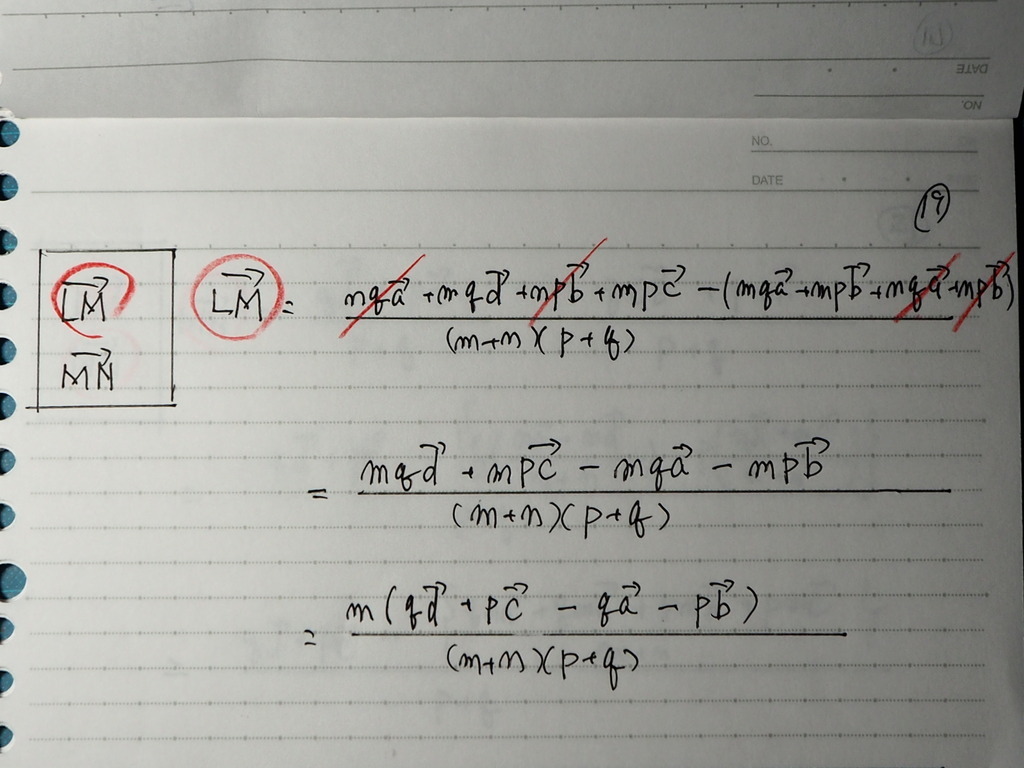 NO.
DATE
NO.
DATE
(19)
$\overrightarrow{LM}$
$\overrightarrow{MN}$
$\overrightarrow{LM} = \frac{nq\vec{a} + mq\vec{d} + np\vec{b} + mp\vec{c} - (mq\vec{a} + mp\vec{b} + nq\vec{a} + np\vec{b})}{(m+n)(p+q)}$
$= \frac{mq\vec{d} + mp\vec{c} - mq\vec{a} - mp\vec{b}}{(m+n)(p+q)}$
$= \frac{m(q\vec{d} + p\vec{c} - q\vec{a} - p\vec{b})}{(m+n)(p+q)}$